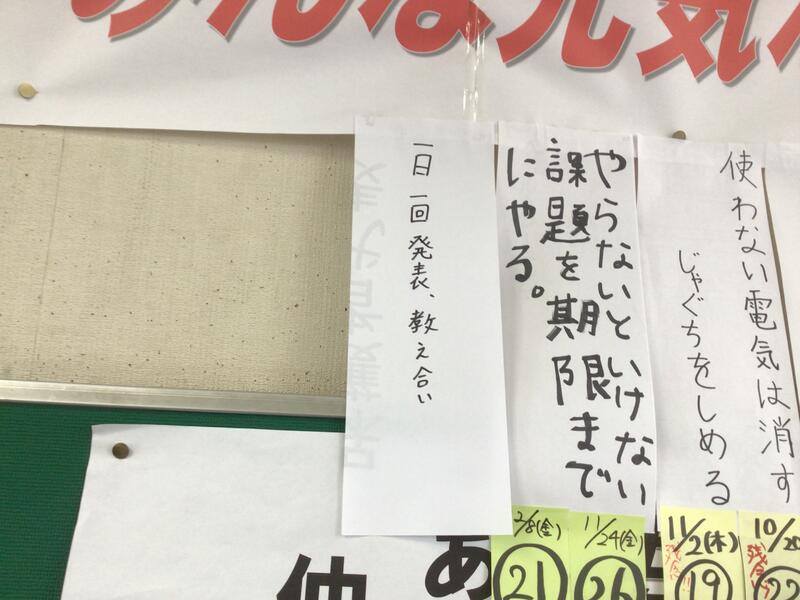 みんな元気
使わない電気は消す
じゃぐちをしめる
やらないといけない
課題を期限まで
にやる。
一日一回発表、教え合い
10/20
残念
22
11/2(木)
残念!!
19
11/24(金)
26
2/8(金)
21
あ
仲